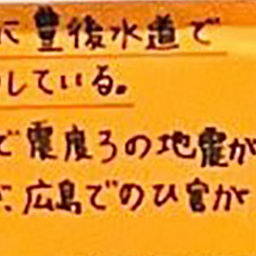 に豊後水道で
している。
で震度3の地震が
広島でのひ害が